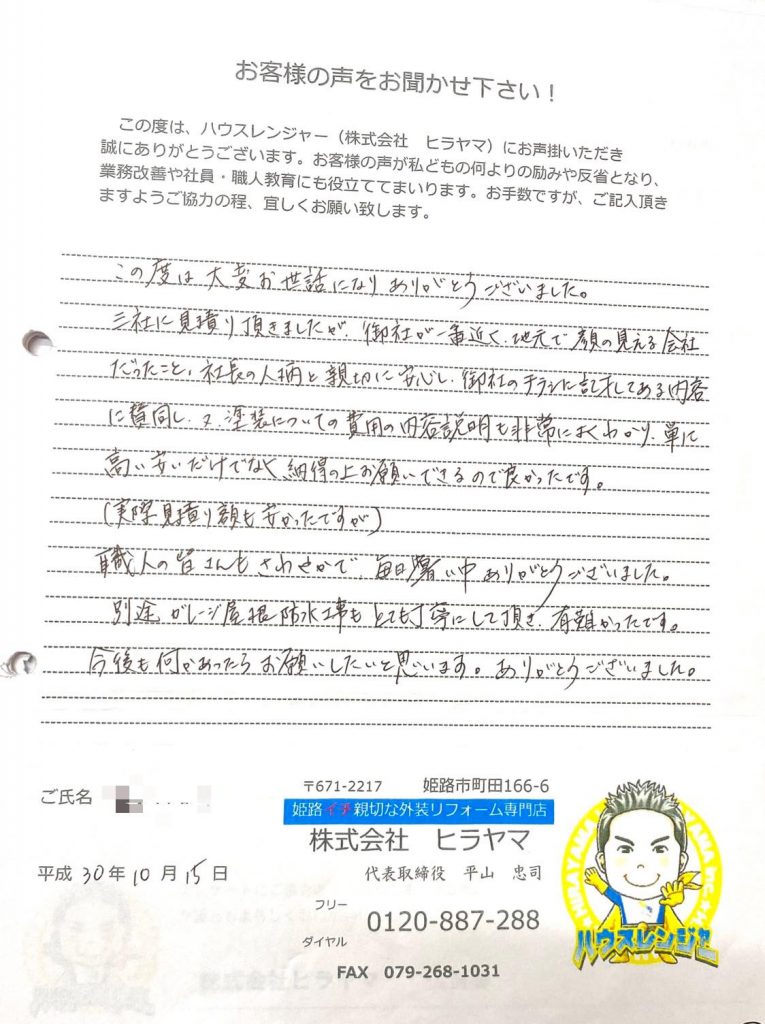 お客様の声をお聞かせ下さい！
この度は、ハウスレンジャー（株式会社　ヒラヤマ）にお声掛いただき
誠にありがとうございます。お客様の声が私どもの何よりの励みや反省となり、
業務改善や社員・職人教育にも役立ててまいります。お手数ですが、ご記入頂き
ますようご協力の程、宜しくお願い致します。
この度は大変お世話になりありがとうございました。
三社に見積り頂きましたが、御社が一番近く、地元で顔の見える会社
だったこと、社長の人柄と親切に安心し、御社のチラシに記載してある内容
に賛同し、又、塗装についての費用の内容説明も非常によくわかり、単に
高い安いだけでなく納得の上お願いできるので良かったです。
(実際見積り額も安かったですが)
職人の皆さんもさわやかで、毎日暑い中ありがとうございました。
別途ガレージ屋根防水工事もとても丁寧にして頂き、有難かったです。
今後も何かあったらお願いしたいと思います。ありがとうございました。
ご氏名
平成 30年 10月 15日
〒671-2217　姫路市町田166-6
姫路イチ親切な外装リフォーム専門店
株式会社　ヒラヤマ
代表取締役　平山　忠司
フリー
ダイヤル
0120-887-288
FAX　079-268-1031
ハウスレンジャー